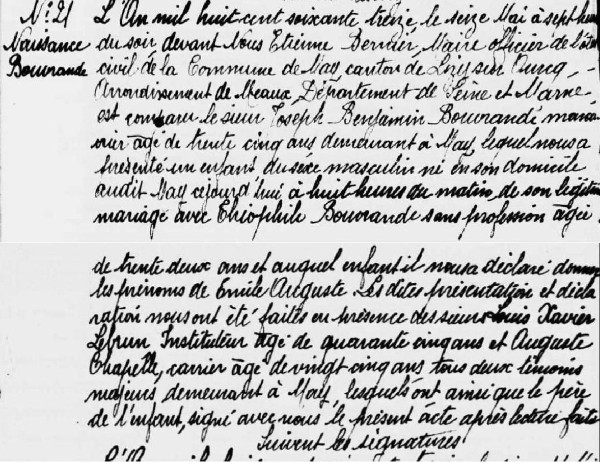 N.° 21 L'An mil huit cent soixante treize le seize Mai à sept heures
Naissance du soir devant Nous Etienne Bernier, Maire officier de l'état
Bouvrande civil de la Commune de May, canton de Lizy sur Ourcq,
Arrondissement de Meaux Département de Seine et Marne,
est comparu le sieur Joseph Benjamin Bouvrande manou
vrier âgé de trente cinq ans demeurant à May, lequel nous a
présenté un enfant du sexe masculin né en son domicile
audit May cejourd'hui à huit heures du matin, de son légitime
mariage avec Théophile Bouvrande sans profession âgée
de trente deux ans et auquel enfant il nous a déclaré donner
les prénoms de Emile Auguste Les dites présentation et décla
ration nous ont été faites en présence des sieurs Louis Xavier
Lebrun Instituteur âgé de quarante cinq ans et Auguste
Chapelle, carrier âgé de vingt cinq ans tous deux témoins
majeurs, demeurant à May, lesquels ont ainsi que le père
de l'enfant, signé avec nous le présent acte après lecture faite
Suivent les signatures